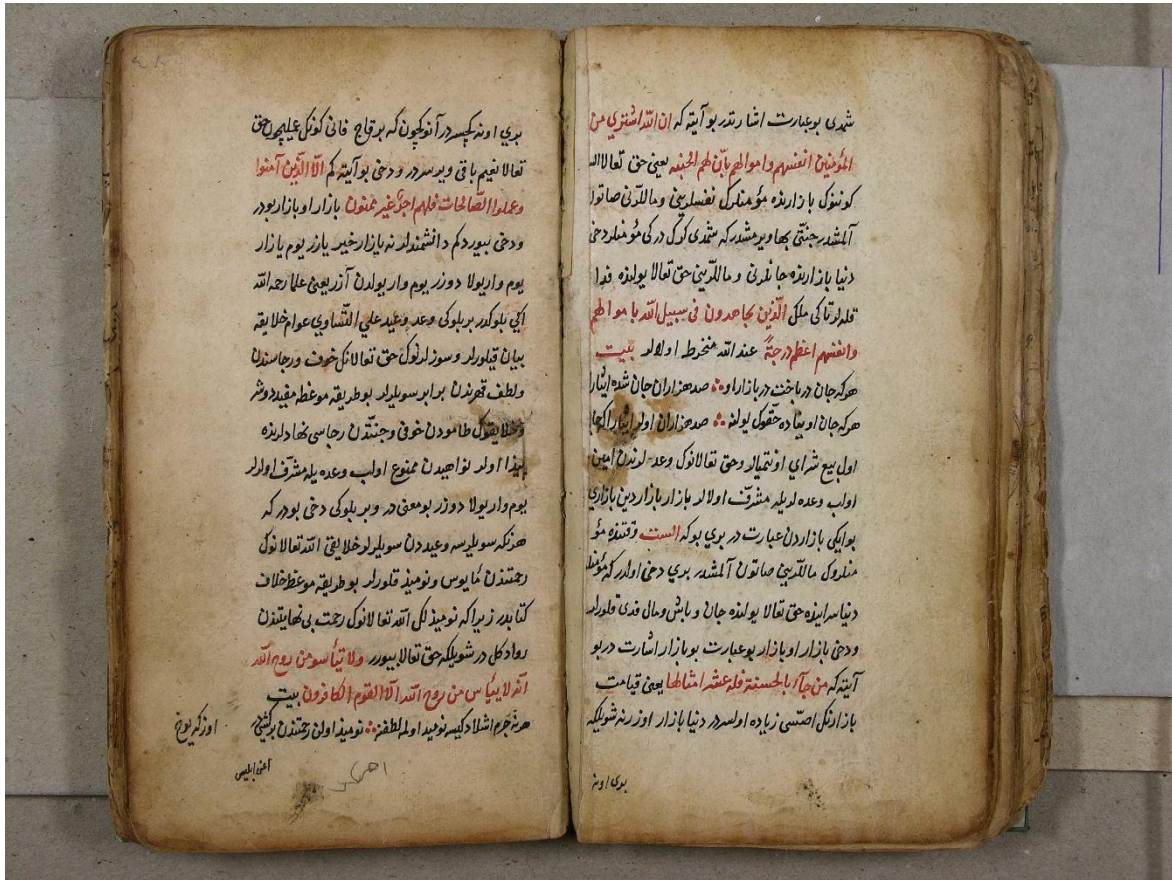 شمدی بو عبارت اشارتدر بو آیته که ان الله اشتري من
المؤمنين انفسهم واموالهم بأن لهم الجنة یعنی حق تعالا الـ
کونوک بازارنده مؤمنلرک نفسلرینی و ماللرنی صاتون
آلمشدر جنتی بها ویرمشدر که شمدی کوک درکی مؤمنلر دخی
دنیا بازارنده جانلرنی و ماللرینی حق تعالا یولنده فدا
قلدلر تا کی ملک الّذين يجاهدون فى سبيل الله باموالهم
وانفسهم اعظم درجةً عند الله منخرط اولالر بیت
هرکه جان در باخت در بازار او صد هزاران جان شده ایثار
هرکه جان اوینادە حقوک یولنه صد هزاران اولر ایثار اکا جا
اول بیع شرای اونتمیالر وحق تعالانوک وعده لرندن امین
اولب وعده لریله مشرّف اولالر بازار بازار دین بازاری
بو ایکی بازاردن عبارت در بری بو که الست وقتنده مؤ
منلروک ماللرینی صاتون آلمشدر بری دخی اولدر که مؤمنلر
دنیا سراینده حق تعالا یولنده جان و باش ومال فدی قلورلر
ودخی بازار او بازار بو عبارت بو بازار اشارت در بو
آیته که من جآء بالحسنة فله عشر امثالها یعنی قیامت
بازارنک اصّسی زیاده اولسدر دنیا بازار اوزرنه شویلکه
بری اونه
بری اونه کچسر در آنوکچون که بر قاج فانی کونکل عملیچون حق
تعالا نعیم باقی ویرسر در ودخی بو آیته کم الّا الّذين آمنوا
وعملوا الصّالحات فلهم اجرٌ غير ممنون بازار او بازار بودر
ودخی بیوردکم دانشمندلرنه بازار خیر یازر یوم یازار
یوم واریولا دوزر یوم واریولدن آزر یعنی علما رحمه الله
اکی بلوکدر بر بلوکی وعد وعید علي التّساوي عوام خلایقه
بیان قیلورلر وسوزلرنوک حق تعالانک خوف ورجاسندن
ولطف قهرندن برابر سویلرلر بو طریقه موعظه مفید دوشر
وخلایقوک طامودن خوفی وجنتدن رجاسی نهادلرنده
پیدا اولر نواهیدن ممنوع اولب وعده یله مشرّف اولورلر
یوم واریولا دوزر بو معنی در وبر بلوکی دخی بودر که
هرنکه سویلرسه وعیددن سویلرلر خلایقی الله تعالانوک
رحمتندن مأیوس ونومیذ قلورلر بو طریقه موعظه خلاف
کتابدر زیرا که نومیذلک الله تعالانوک رحمت بی نهایتندن
روا دکل در شویلکه حق تعالا بیورر ولا تيأسو من روح الله
انه لا ييأس من روح الله الّا القوم الكافرون بیت
هرنه جرم اشلادکیسه نومید اولمه لطفنه نومیذ اولن رحمتندن
اعنی ابلیس